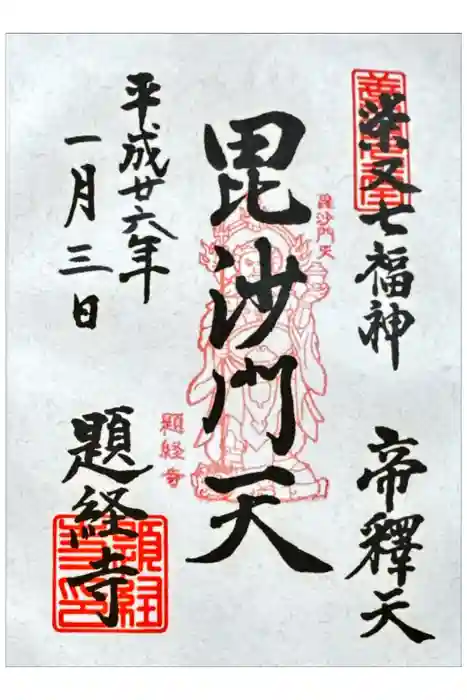 柴又七福神 帝釋天
毘沙門天
毘沙門天
題経寺
平成廿六年
一月三日
題経寺
題経寺印